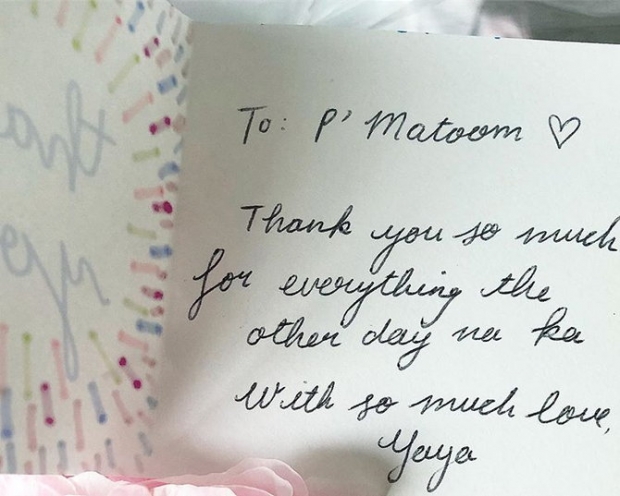 To: P' Matoom ♡
Thank you so much
for everything the
other day na ka
With so much love,
Yaya